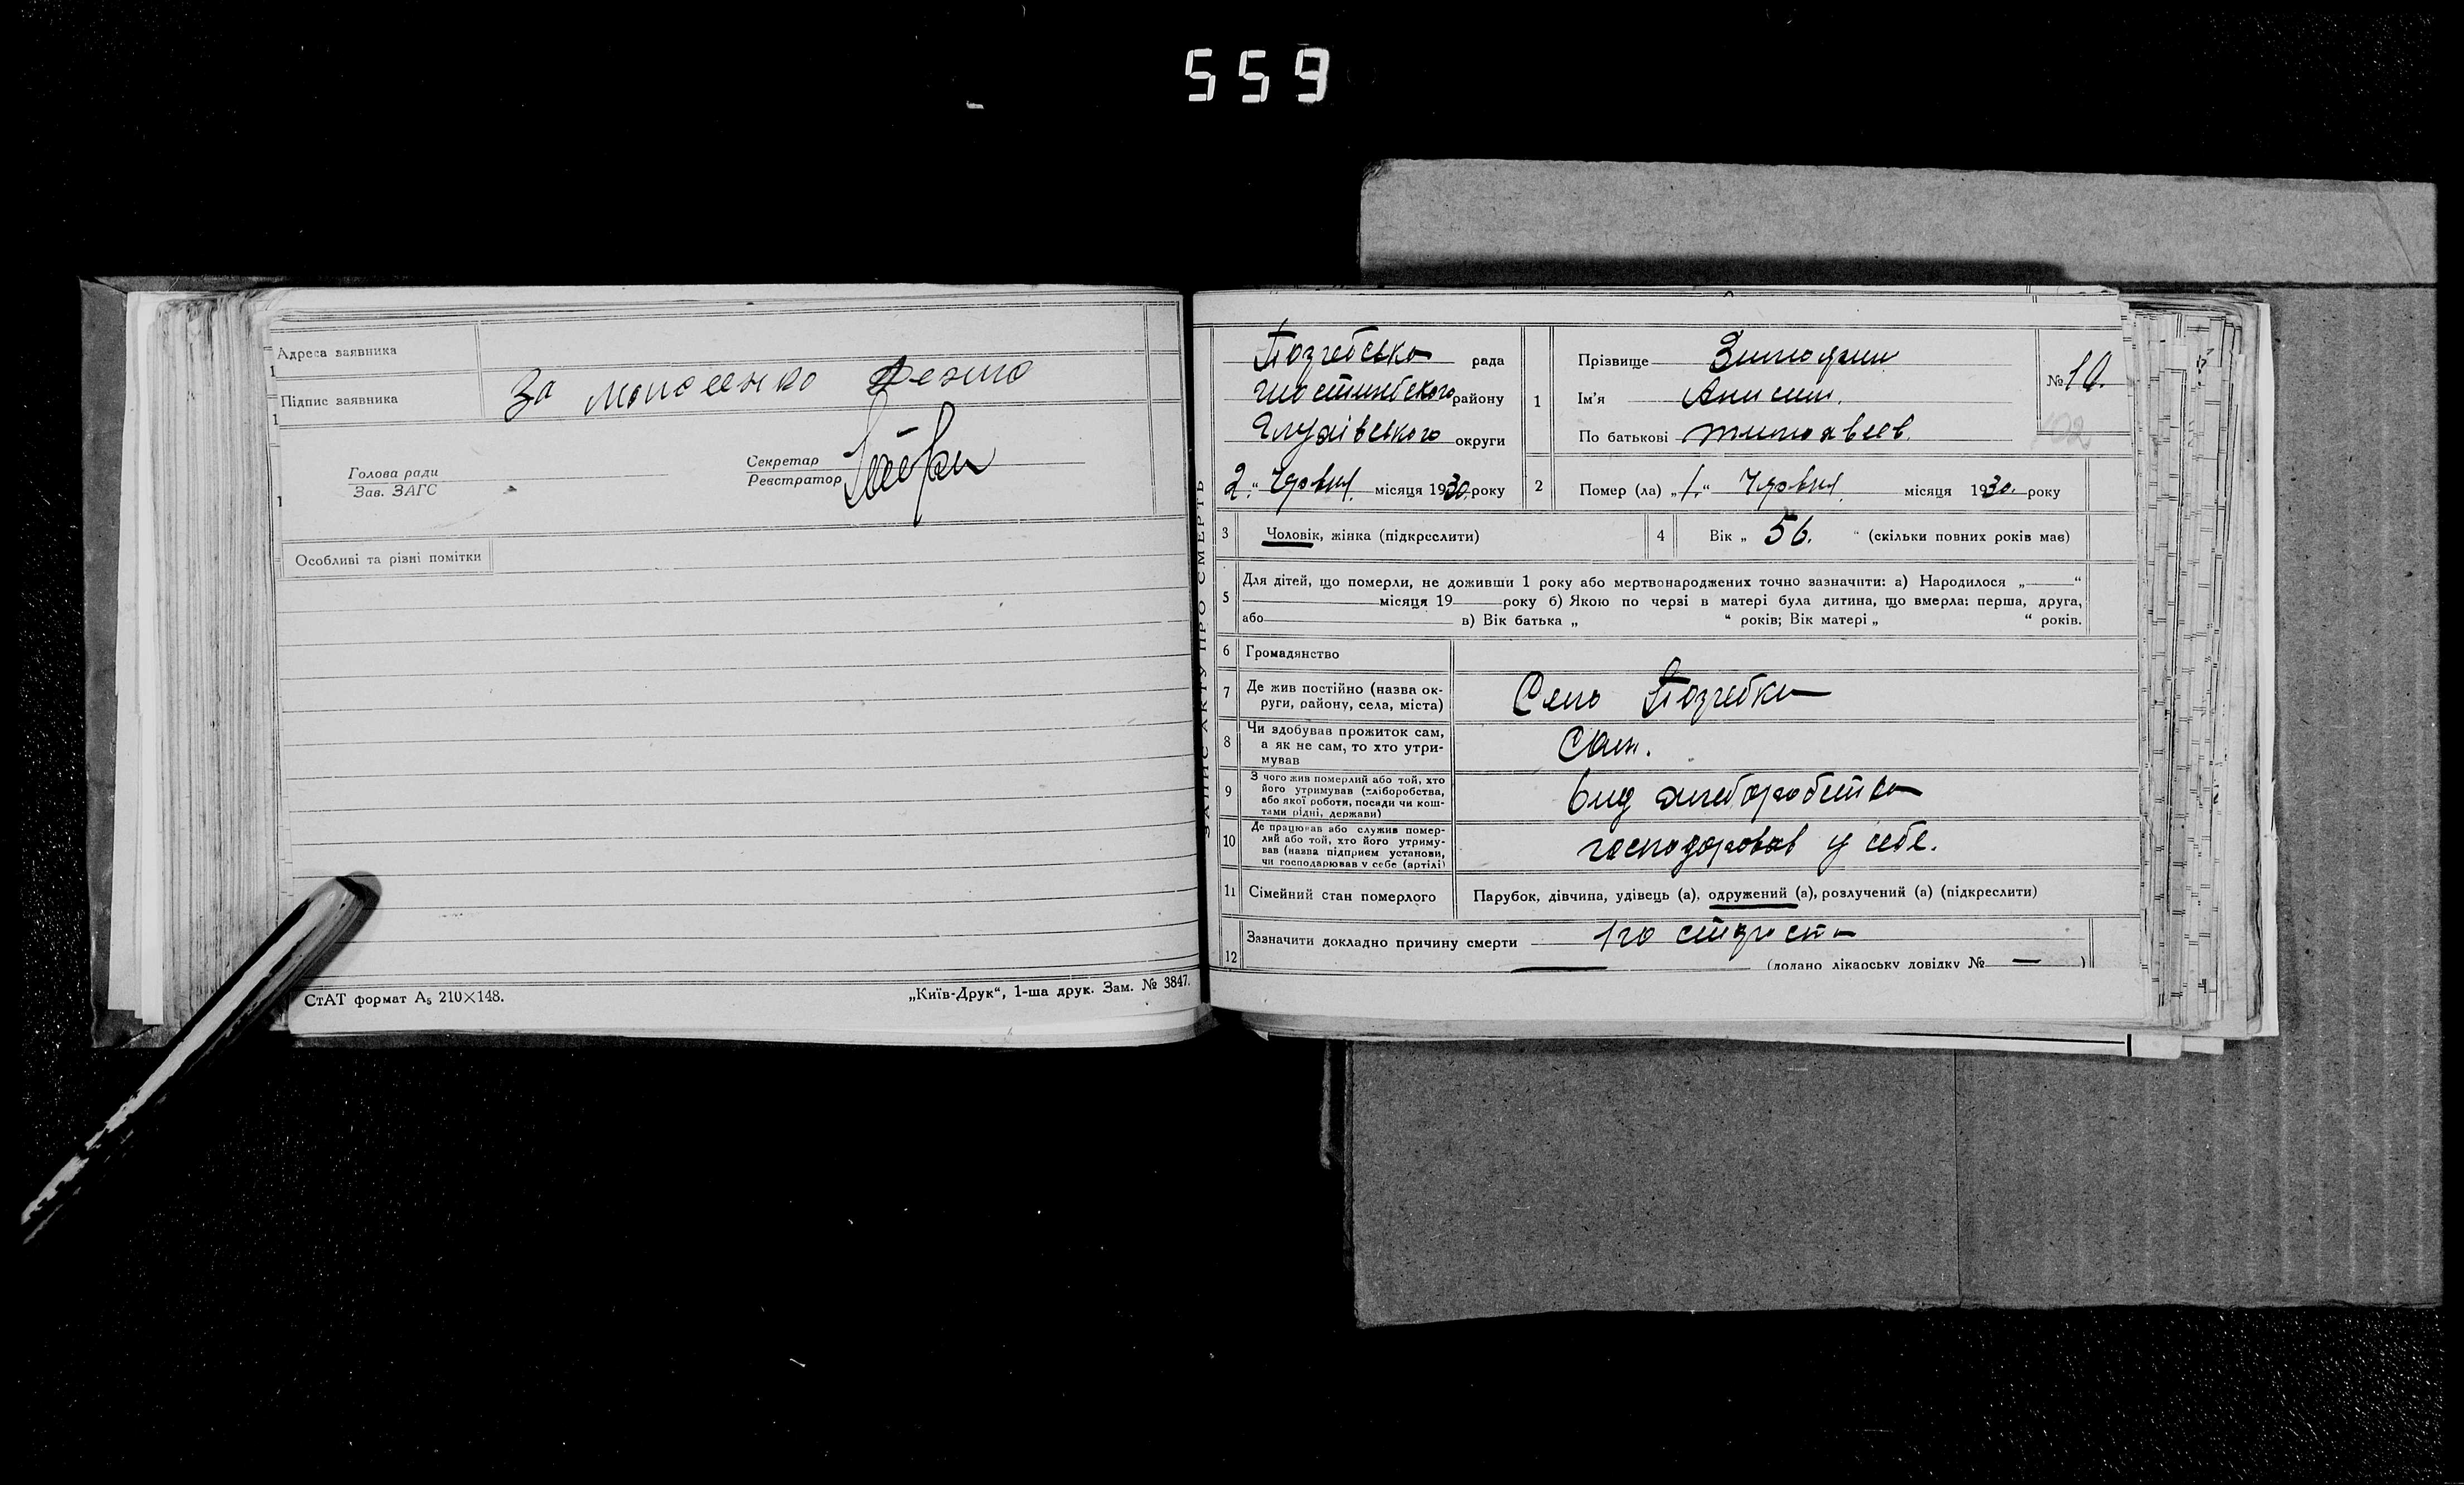 559
Адреса заявника
Підпис заявника За
Голова ради
Зав. ЗАГС
Секретар
Реєстратор
Особливі та різні помітки
СтАТ формат А₅ 210×148.
„Київ-Друк“, 1-ша друк. Зам. № 3847.
ЗАПИС АКТУ ПРО СМЕРТЬ
рада
району
Глухівського округи
„2“ Червня місяця 1930 року
1
Прізвище
Ім'я Анисим
По батькові
№ 10.
102
2 Помер (ла) „1“ Червня місяця 1930. року
3 Чоловік, жінка (підкреслити)
4 Вік „ 56. “ (скільки повних років має)
5 Для дітей, що померли, не доживши 1 року або мертвонароджених точно зазначити: а) Народилося „ “
місяця 19 року б) Якою по черзі в матері була дитина, що вмерла: перша, друга,
або в) Вік батька „ “ років; Вік матері „ “ років.
6 Громадянство
7 Де жив постійно (назва округи, району, села, міста) Село Погребки
8 Чи здобував прожиток сам,
а як не сам, то хто утри-
мував
Сам.
9 З чого жив померлий або той, хто
його утримував (хліборобства,
або якої роботи, посади чи кош-
тами рідні, держави)
від хлиборобства
10 Де працював або служив помер-
лий або той, хто його утриму-
вав (назва підприєм установи,
чи господарював у себе (артілі)
господоровав у себе.
11 Сімейний стан померлого Парубок, дівчина, удівець (а), одружений (а), розлучений (а) (підкреслити)
12 Зазначити докладно причину смерти
(додано лікарську довідку № — )